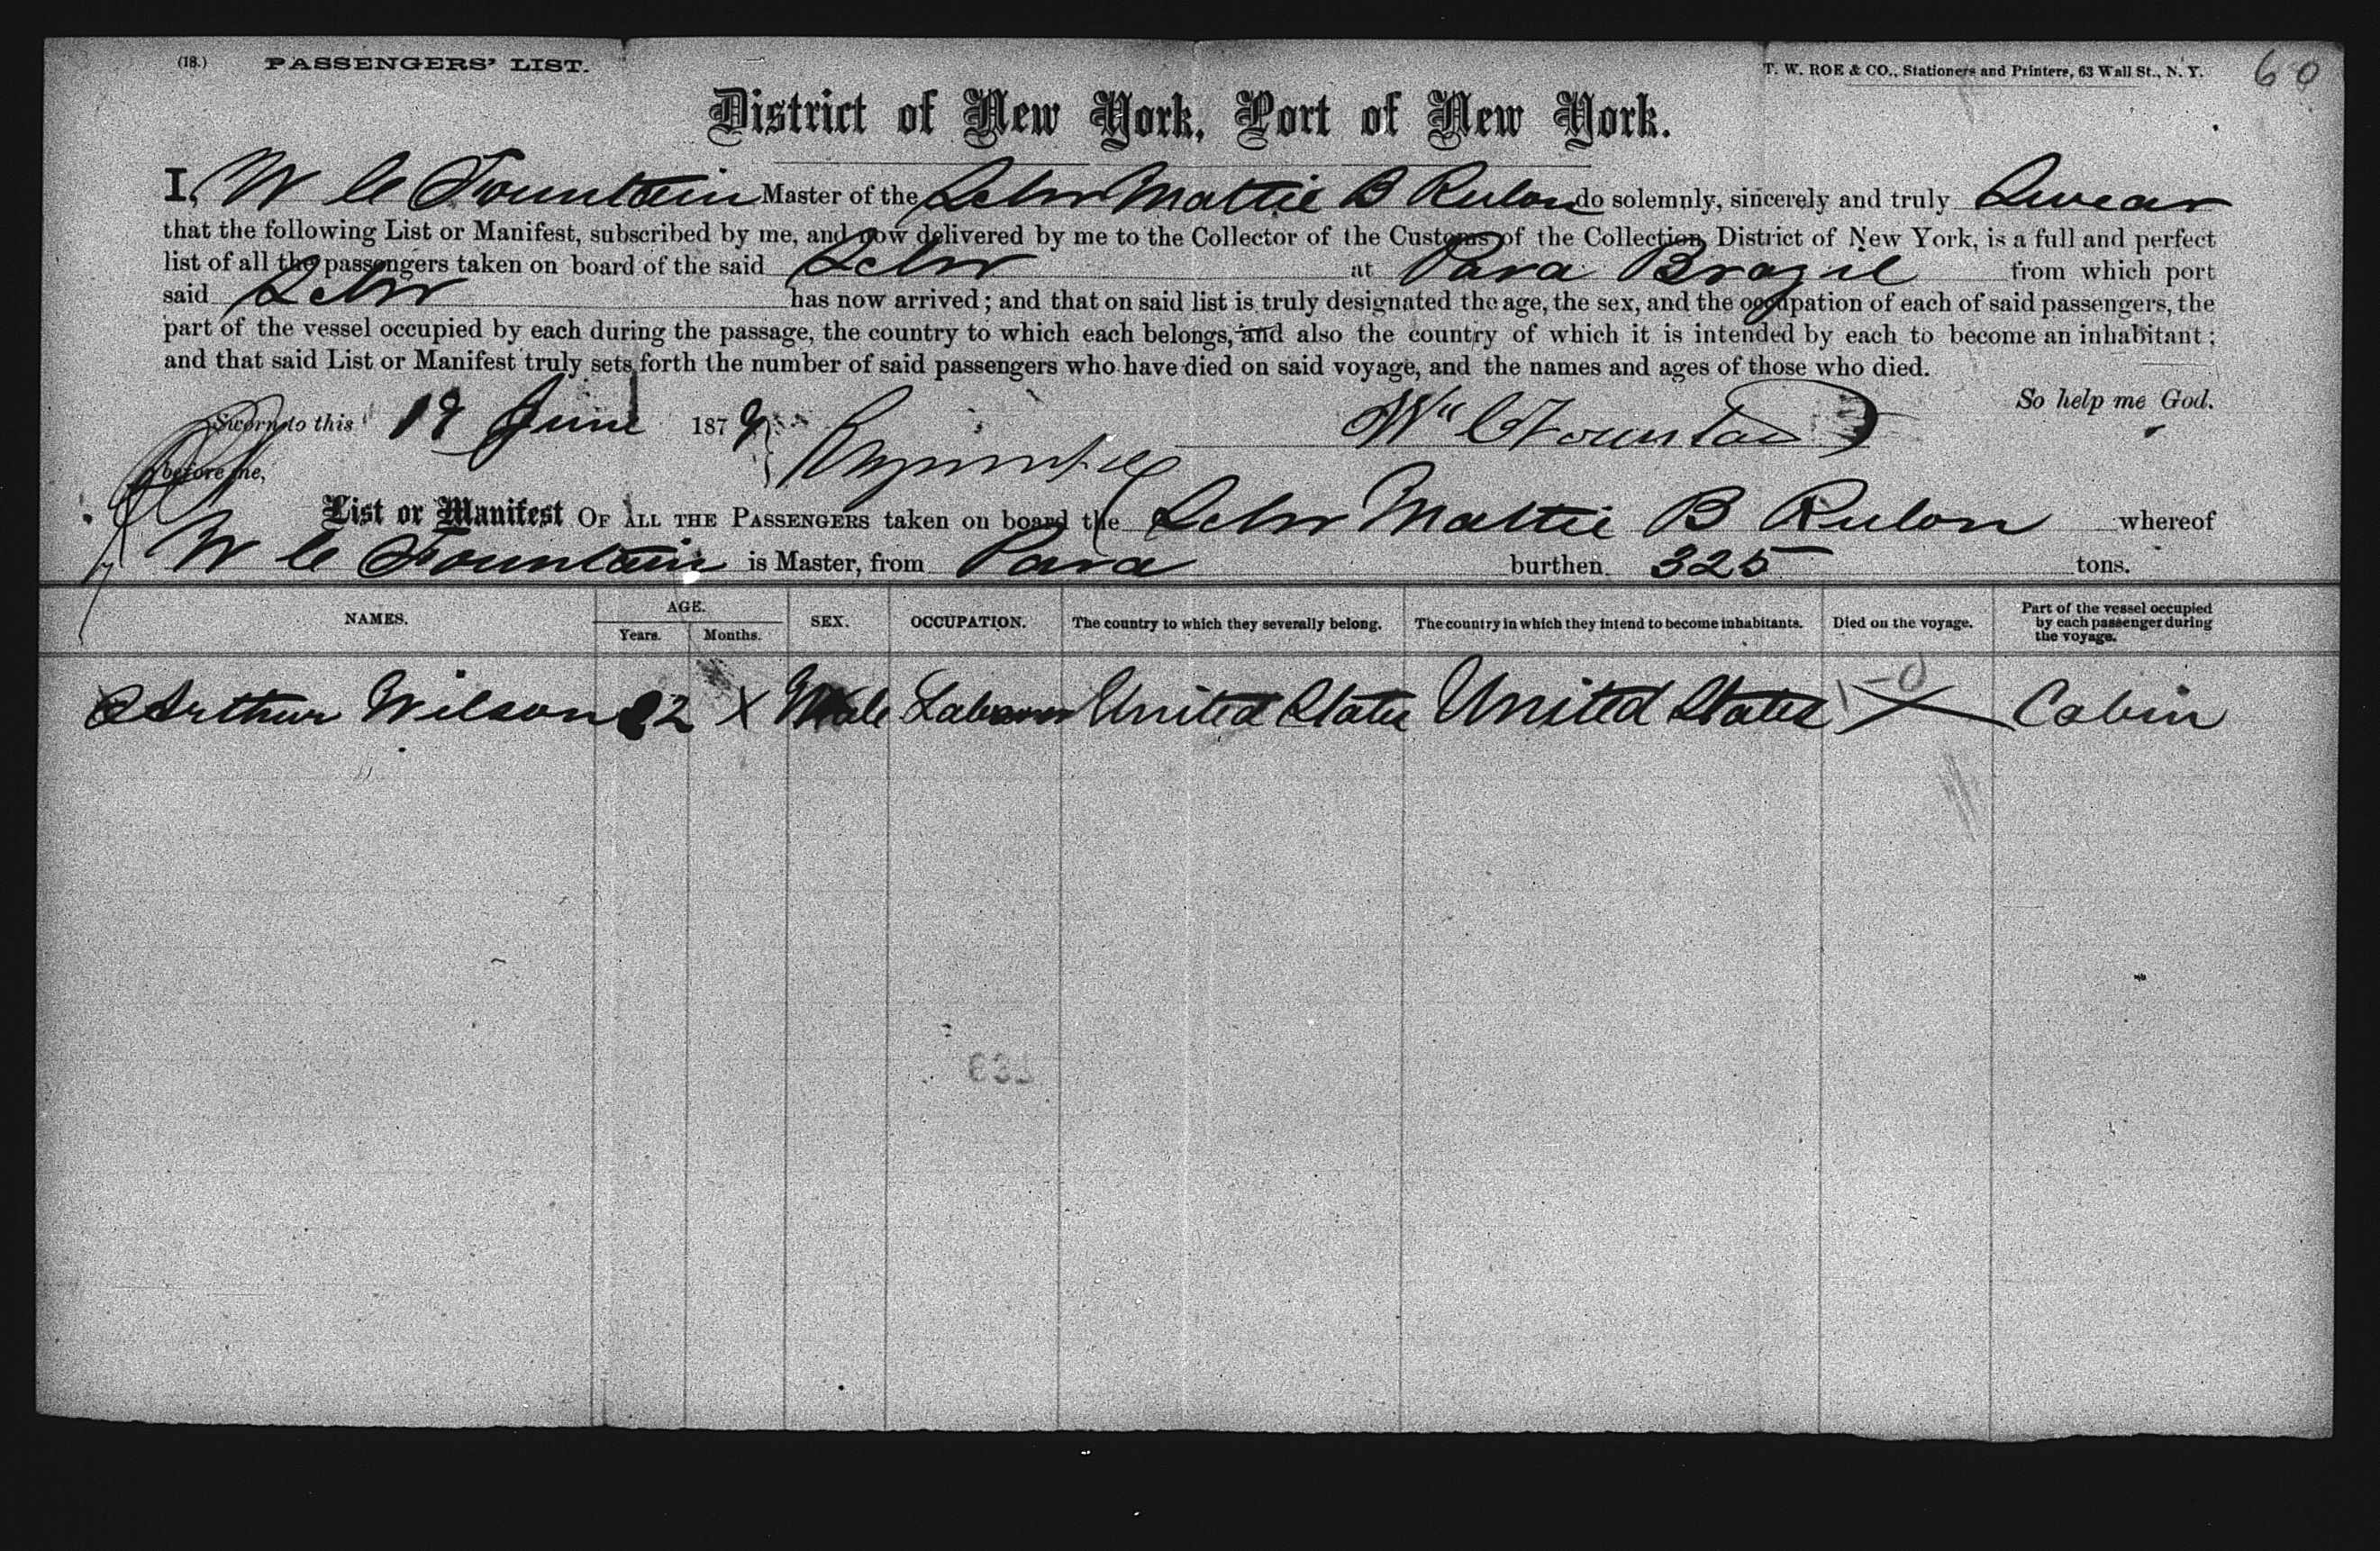 (18.) PASSENGERS' LIST.
T. W. ROE & CO., Stationers and Printers, 63 Wall St., N. Y. 60
District of New York, Port of New York.
I, W C Fountain Master of the Schr Mattie B Rulon do solemnly, sincerely and truly Swear
that the following List or Manifest, subscribed by me, and now delivered by me to the Collector of the Customs of the Collection District of New York, is a full and perfect
list of all the passengers taken on board of the said Schr at Para Brazil from which port
said Schr has now arrived; and that on said list is truly designated the age, the sex, and the occupation of each of said passengers, the
part of the vessel occupied by each during the passage, the country to which each belongs, and also the country of which it is intended by each to become an inhabitant;
and that said List or Manifest truly sets forth the number of said passengers who have died on said voyage, and the names and ages of those who died.
So help me God.
Sworn to this 19 June 1879
Wm C Fountain
before me,
List or Manifest OF ALL THE PASSENGERS taken on board the Schr Mattie B Rulon whereof
W C Fountain is Master, from Para burthen 325 tons.
NAMES. AGE. Years. Months. SEX. OCCUPATION. The country to which they severally belong. The country in which they intend to become inhabitants. Died on the voyage. Part of the vessel occupied by each passenger during the voyage.
Arthur Wilson 22 X Male Laborer United States United States X Cabin